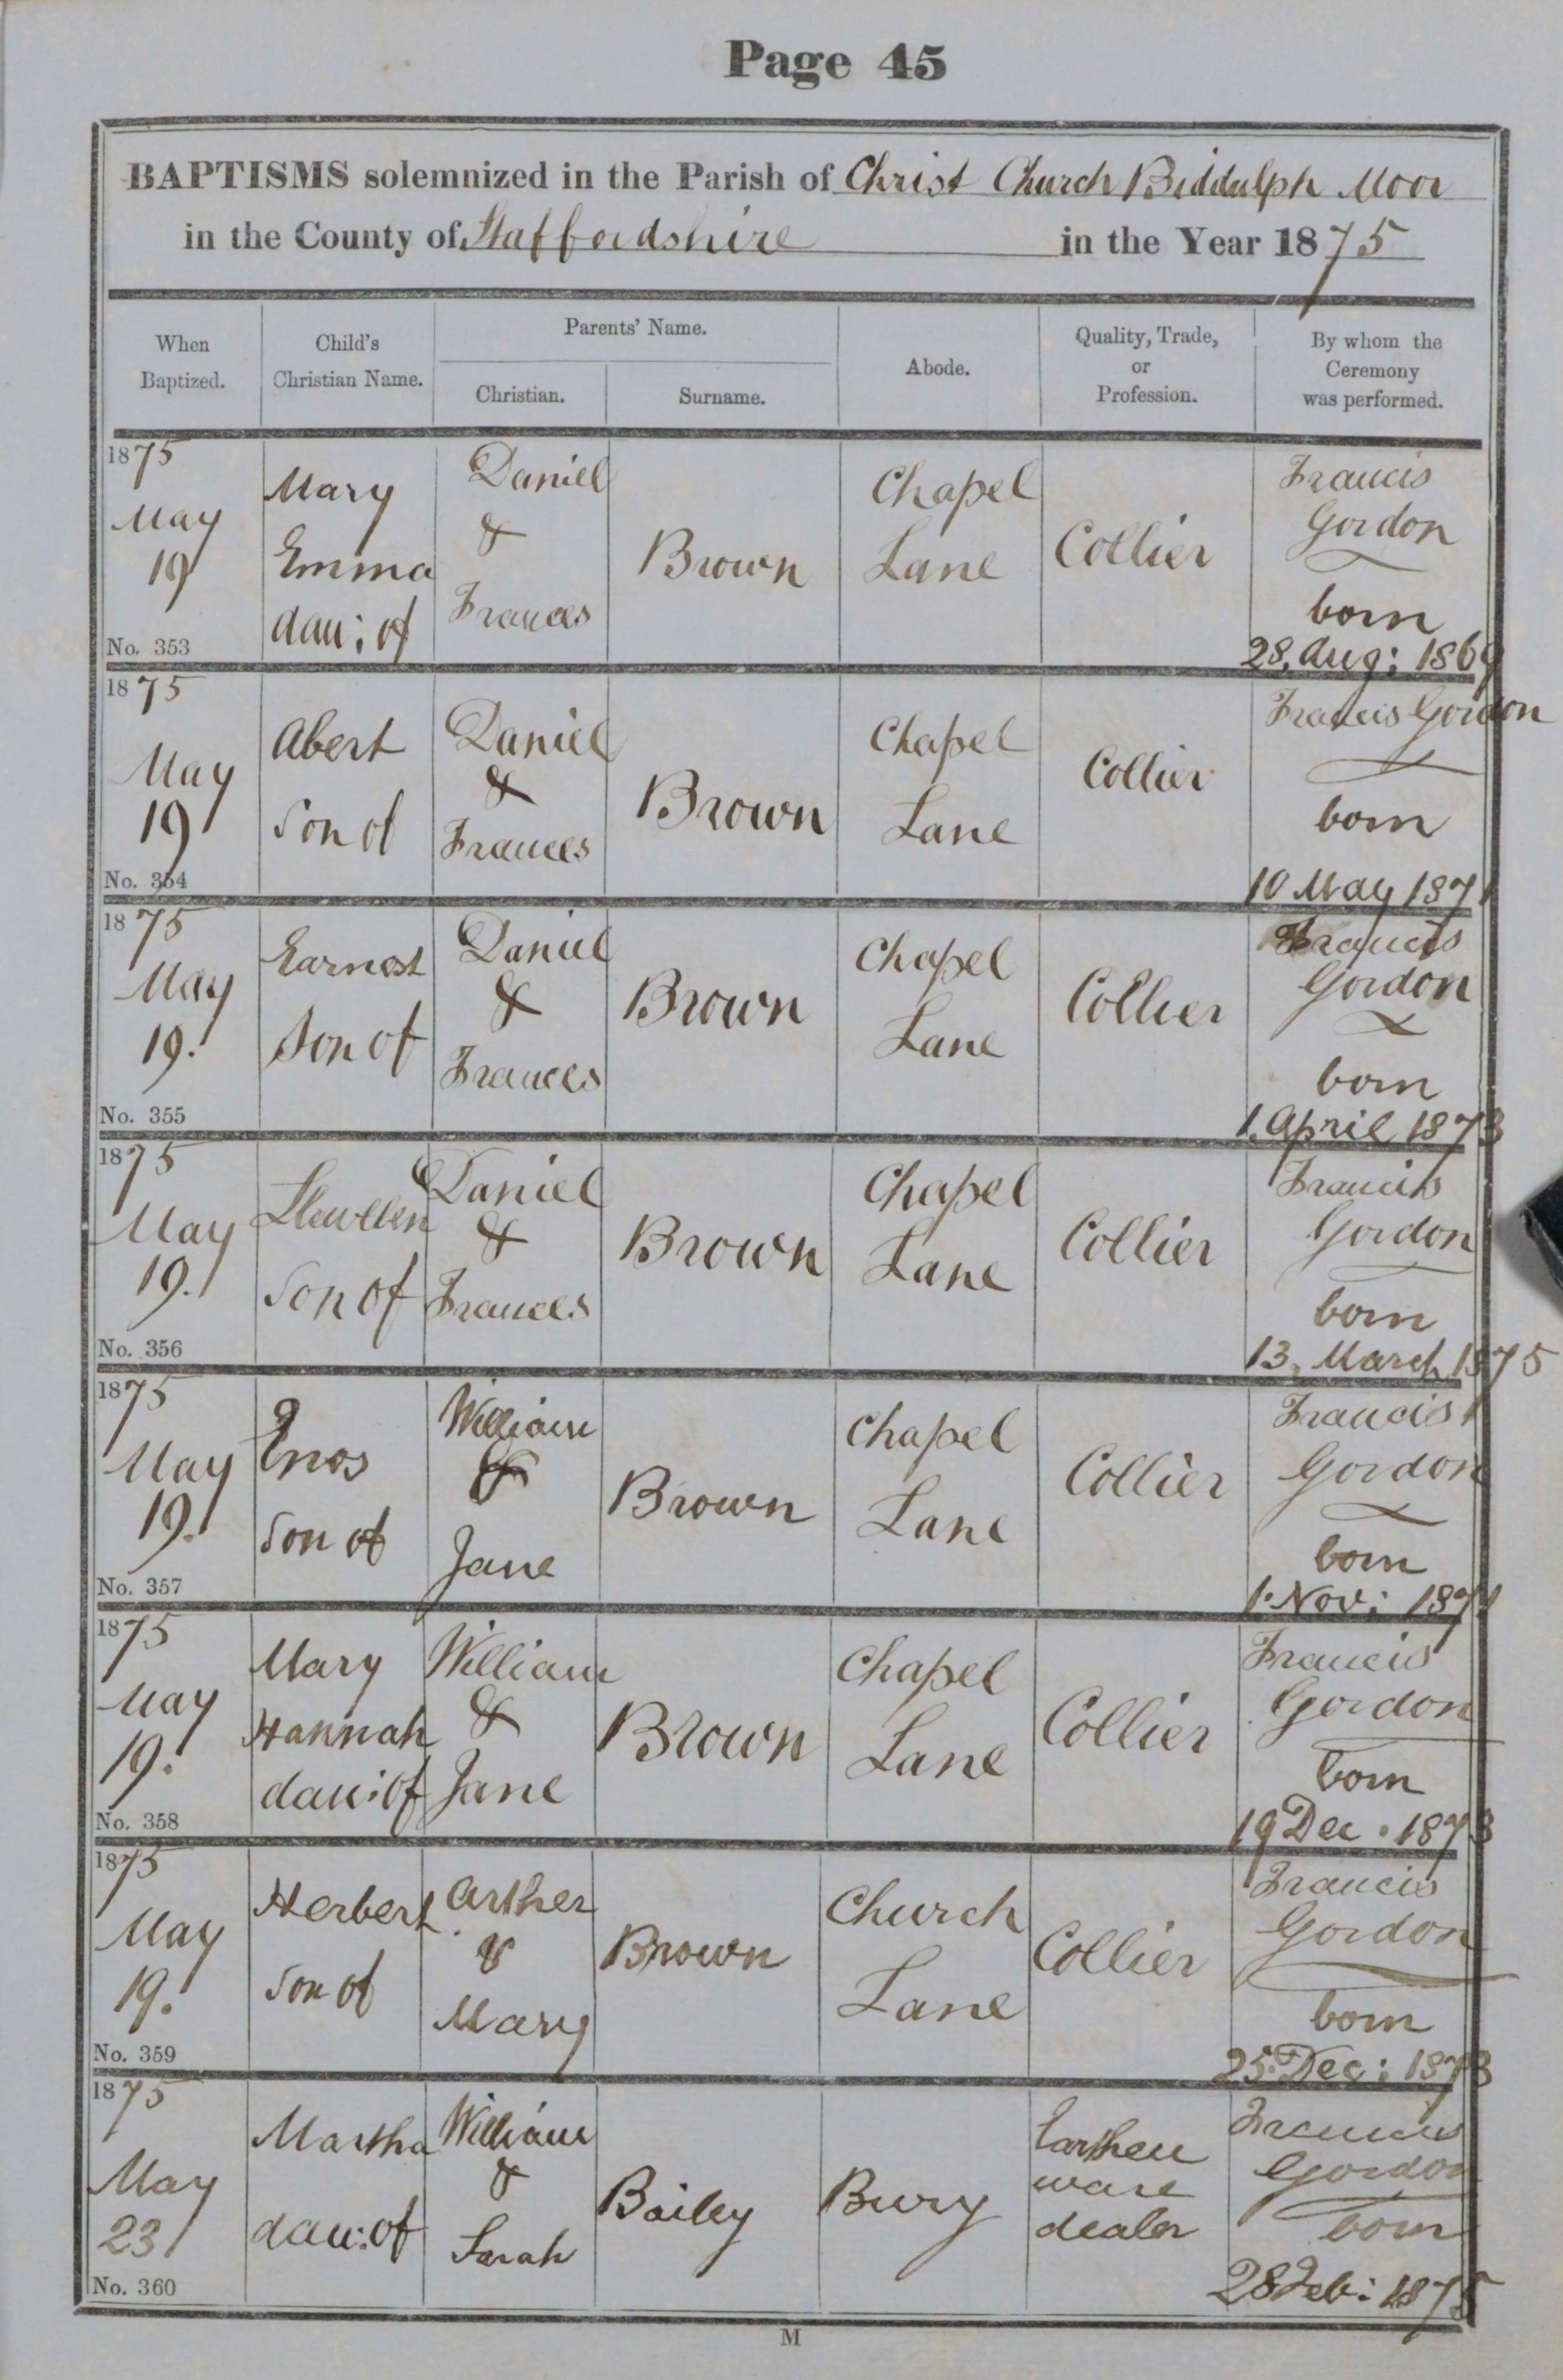 Page 45
BAPTISMS solemnized in the Parish of Christ Church Biddulph Moor
in the County of Staffordshire in the Year 1875
When Baptized.
Child's Christian Name.
Parents' Name.
Christian.
Surname.
Abode.
Quality, Trade, or Profession.
By whom the Ceremony was performed.
1875
May
19
No. 353
Mary
Emma
dau: of
Daniel
&
Frances
Brown
Chapel
Lane
Collier
Francis
Gordon
born
28. Aug: 1869
1875
May
19
No. 354
Abert
Son of
Daniel
&
Frances
Brown
Chapel
Lane
Collier
Francis Gordon
born
10 May 1871
1875
May
19.
No. 355
Earnest
Son of
Daniel
&
Frances
Brown
Chapel
Lane
Collier
Francis
Gordon
born
1. April 1873
1875
May
19.
No. 356
Llewellen
Son of
Daniel
&
Frances
Brown
Chapel
Lane
Collier
Francis
Gordon
born
13. March 1875
1875
May
19.
No. 357
Enos
Son of
William
&
Jane
Brown
Chapel
Lane
Collier
Francis
Gordon
born
1. Nov: 1871
1875
May
19.
No. 358
Mary
Hannah
dau: of
William
&
Jane
Brown
Chapel
Lane
Collier
Francis
Gordon
born
19 Dec. 1873
1875
May
19.
No. 359
Herbert
Son of
Arther
&
Mary
Brown
Church
Lane
Collier
Francis
Gordon
born
25. Dec: 1873
1875
May
23
No. 360
Martha
dau: of
William
&
Sarah
Bailey
Bury
Earthen
ware
dealer
Francis
Gordon
born
28 Feb: 1875
M